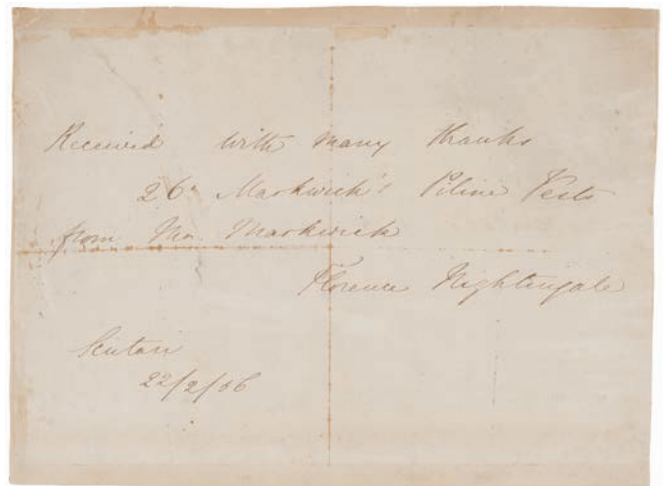 Received with many thanks
26 Markwick's Piline Vests
from Mr. Markwick
Florence Nightingale
Scutari
22/2/56